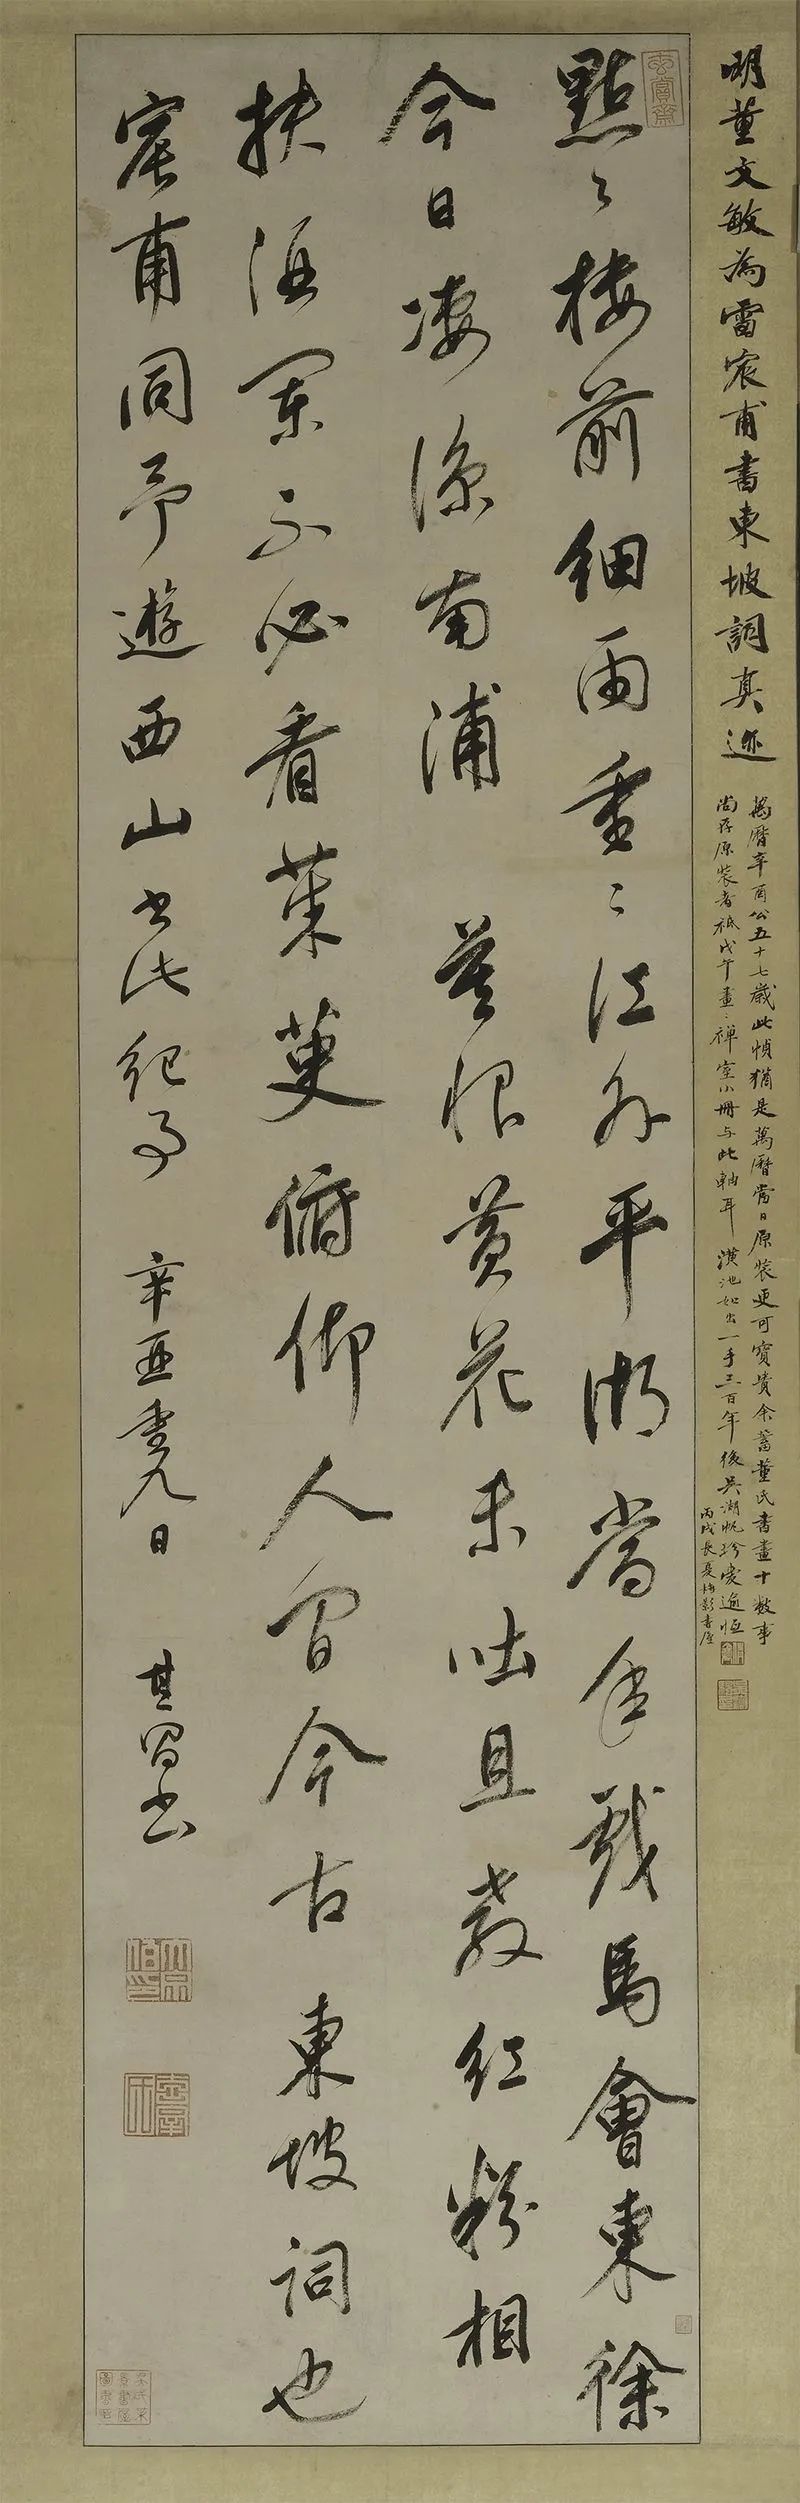 明董文敏為雷宸甫書東坡詞真迹
萬曆辛酉公五十七歲此幀猶是萬曆當日原裝更可寶貴余蓄董氏書畫十數事
尚存原裝者祇戊午畫禪室小冊与此軸耳潢池如出一手三百年後吳湖帆珍愛逾恒
丙戌長夏梅影書屋
點〻樓前細雨重〻江外平湖當年戲馬會東徐
今日凄涼南浦 莫恨黃花未吐且教紅粉相
扶酒闌不必看茱萸俯仰人間今古 東坡詞也
宸甫同予遊西山書此紀事 辛酉重九日 其昌書
玄賞齋